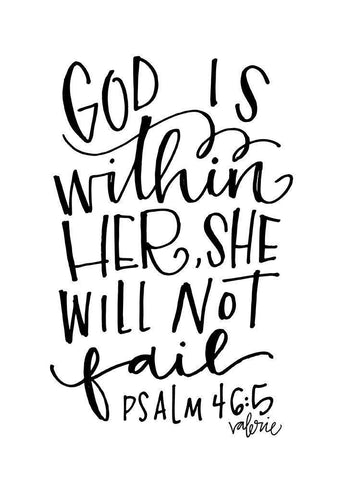 GOD IS
within
HER, SHE
WILL NOT
fail
PSALM 46:5
valerie